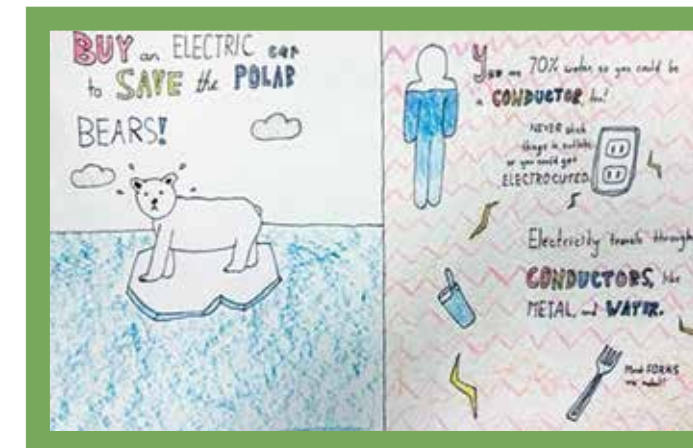 BUY an ELECTRIC car
to SAVE the POLAR
BEARS!
You are 70% water, so you could be
a CONDUCTOR, too!
NEVER stick
things in outlets
or you could get
ELECTROCUTED.
Electricity travels through
CONDUCTORS, like
METAL, and WATER.
Most FORKS
are metal!